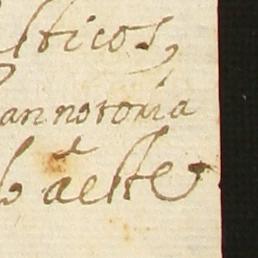 lticos,
annotoria
b aeste